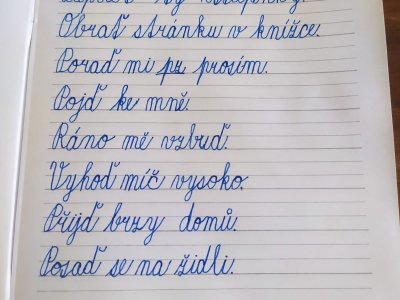 Obrať stránku v knížce.
Poraď mi prosím.
Pojď ke mně.
Ráno mě vzbuď.
Vyhoď míč vysoko.
Přijď brzy domů.
Posaď se na židli.